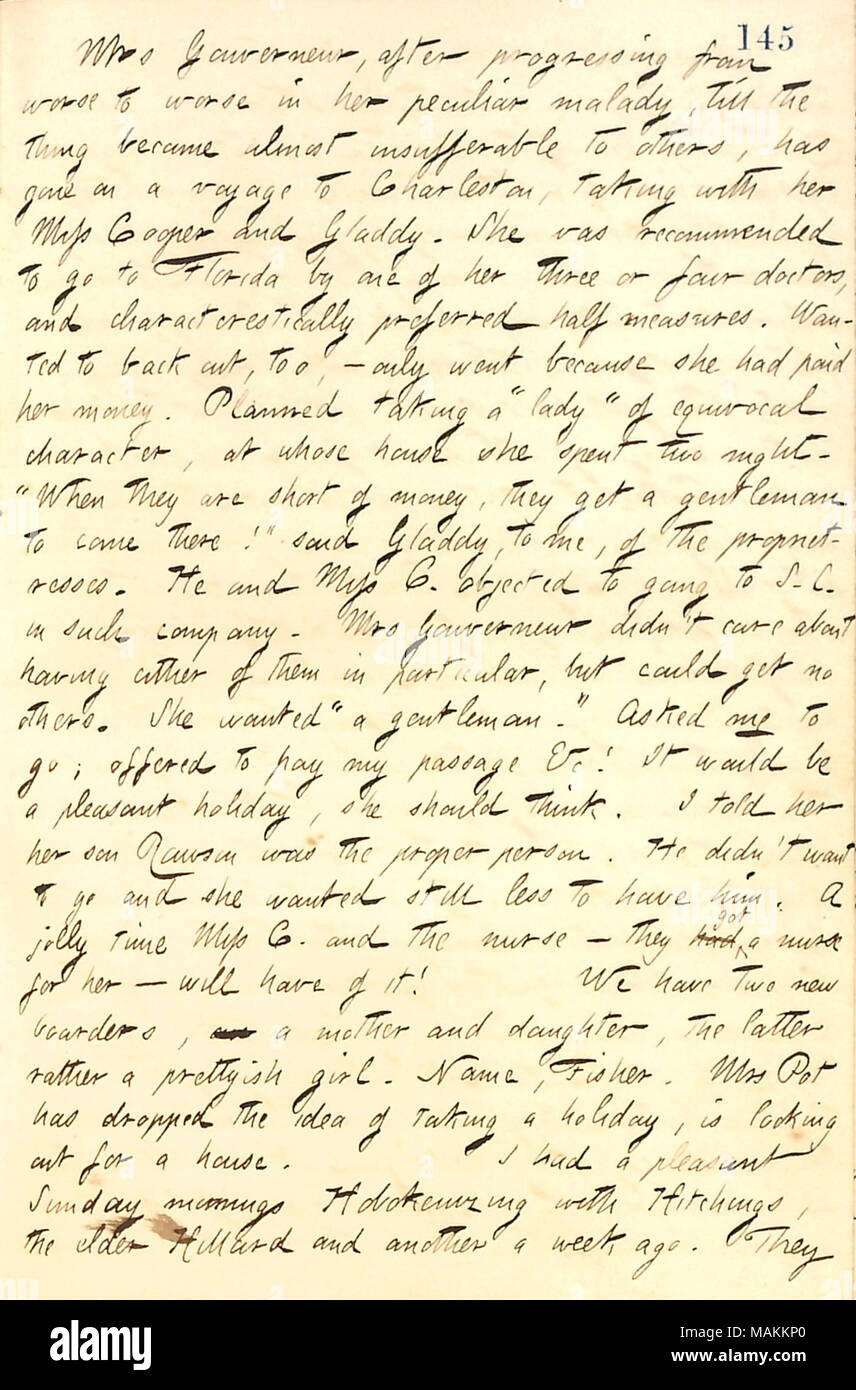 145
Mrs Gouverneur, after progressing from
worse to worse in her peculiar malady, till the
thing became almost insufferable to others, has
gone on a voyage to Charleston, taking with her
Miss Cooper and Gladdy. She was recommended
to go to Florida by one of her three or four doctors,
and characterestically preferred half measures. Wan-
ted to back out, too, — only went because she had paid
her money. Planned taking a "lady" of equivocal
character, at whose house she spent two night.
"When they are short of money, they get a gentleman
to come there!" said Gladdy, to me, of the propriet-
resses. He and Miss C. objected to going to S. C.
in such company. Mrs Gouverneur didn't care about
having either of them in particular, but could get no
others. She wanted "a gentleman." Asked me to
go; offered to pay my passage &c! It would be
a pleasant holiday, she should think. I told her
her son Rawson was the proper person. He didn't want
to go and she wanted still less to have him. A
jolly time Miss C. and the nurse — they had got a nurse
for her — will have of it! We have two new
boarders, an a mother and daughter, the latter
rather a prettyish girl. Name, Fisher. Mrs Pot
has dropped the idea of taking a holiday, is looking
out for a house. I had a pleasant
Sunday mornings Hobokenizing with Hitchings,
the elder Hillard and another a week ago. They
alamy
Image ID: MAKKP0
www.alamy.com